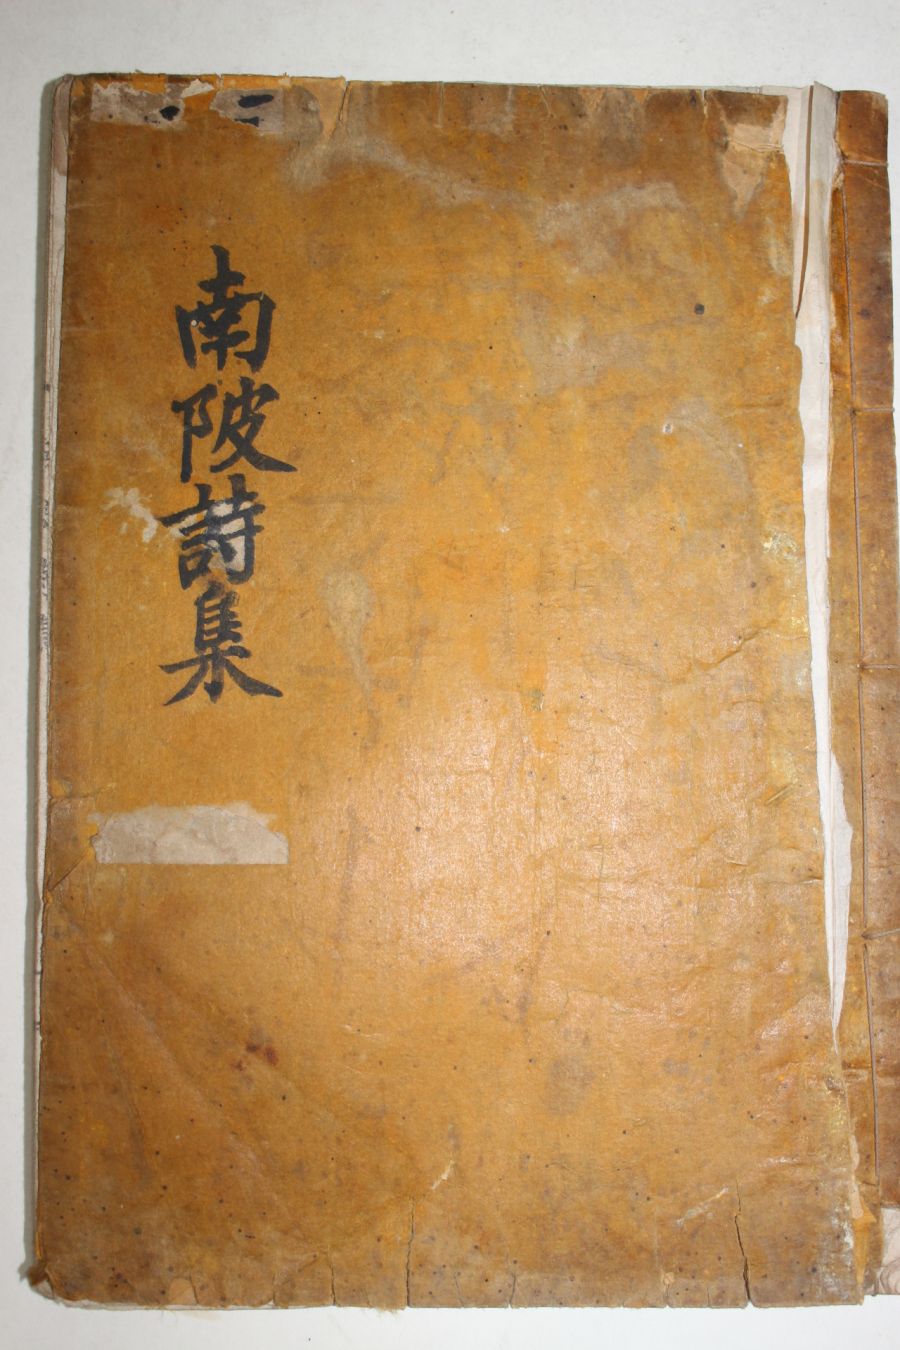 南陂詩集